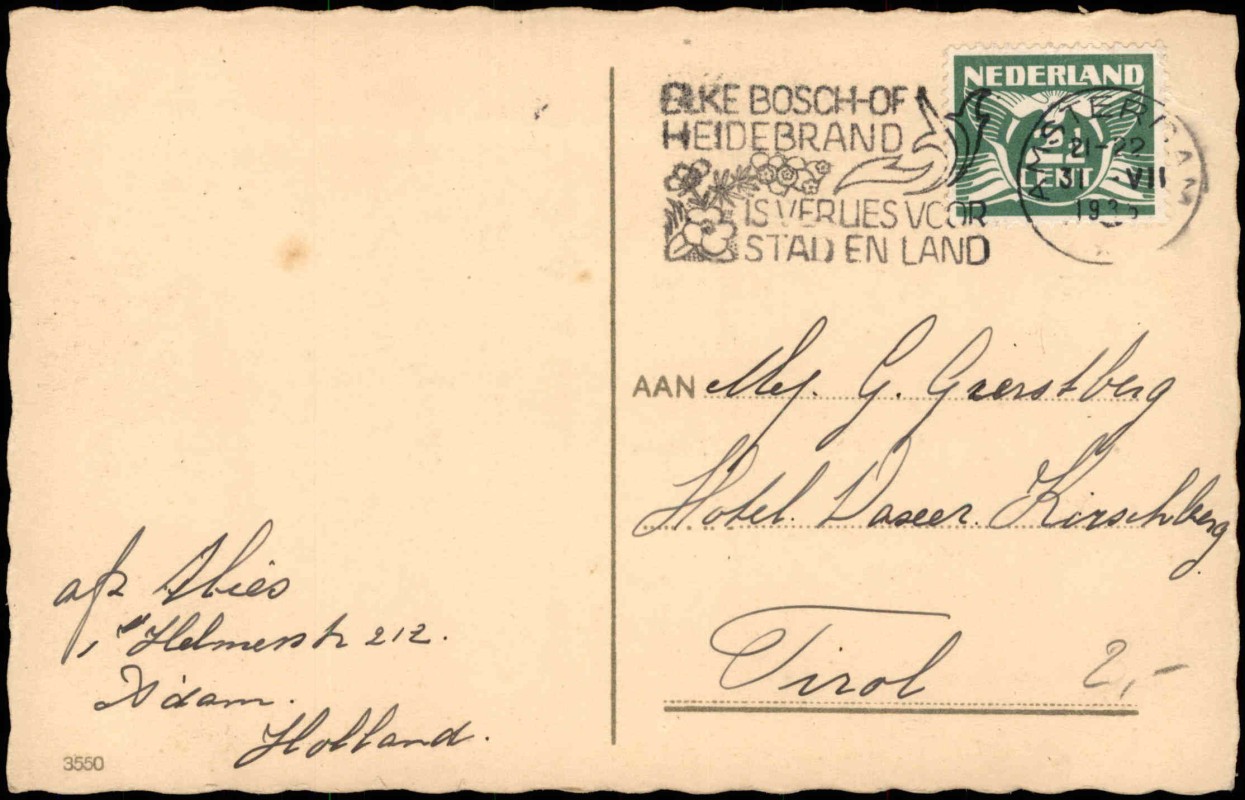 ELKE BOSCH-OF
HEIDEBRAND
IS VERLIES VOOR
STAD EN LAND
NEDERLAND
CENT
AMSTERDAM
21-22
31 VII
193
AAN Mej. G. Gaerstberg
Hotel. Daseer. Kirschberg
Tirol
2,-
afz
1e Helmerstr 212.
A'dam.
Holland.
3550